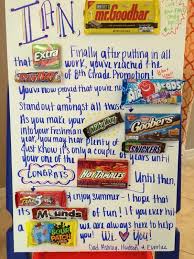 IAN,
Mr.Goodbar
Extra
Finally after putting in all
that work, you've reached the
of 8th Grade Promotion!
You've now proved that you're
AirHeads
Standout amongst all those
As you make your
Milky Way
Goobers
into your Freshman
year, you may hear plenty of
SNICKERS
Just know it's only a couple of years until
your one of the
CONGRATS
HOT TAMALES
Until then,
enjoy summer - I hope that
it's
Mounds
of fun! If you ever
SOUR PATCH KIDS
we are always here to help
We ♡ You!
Dad, Ashley, Hudson & Everlee